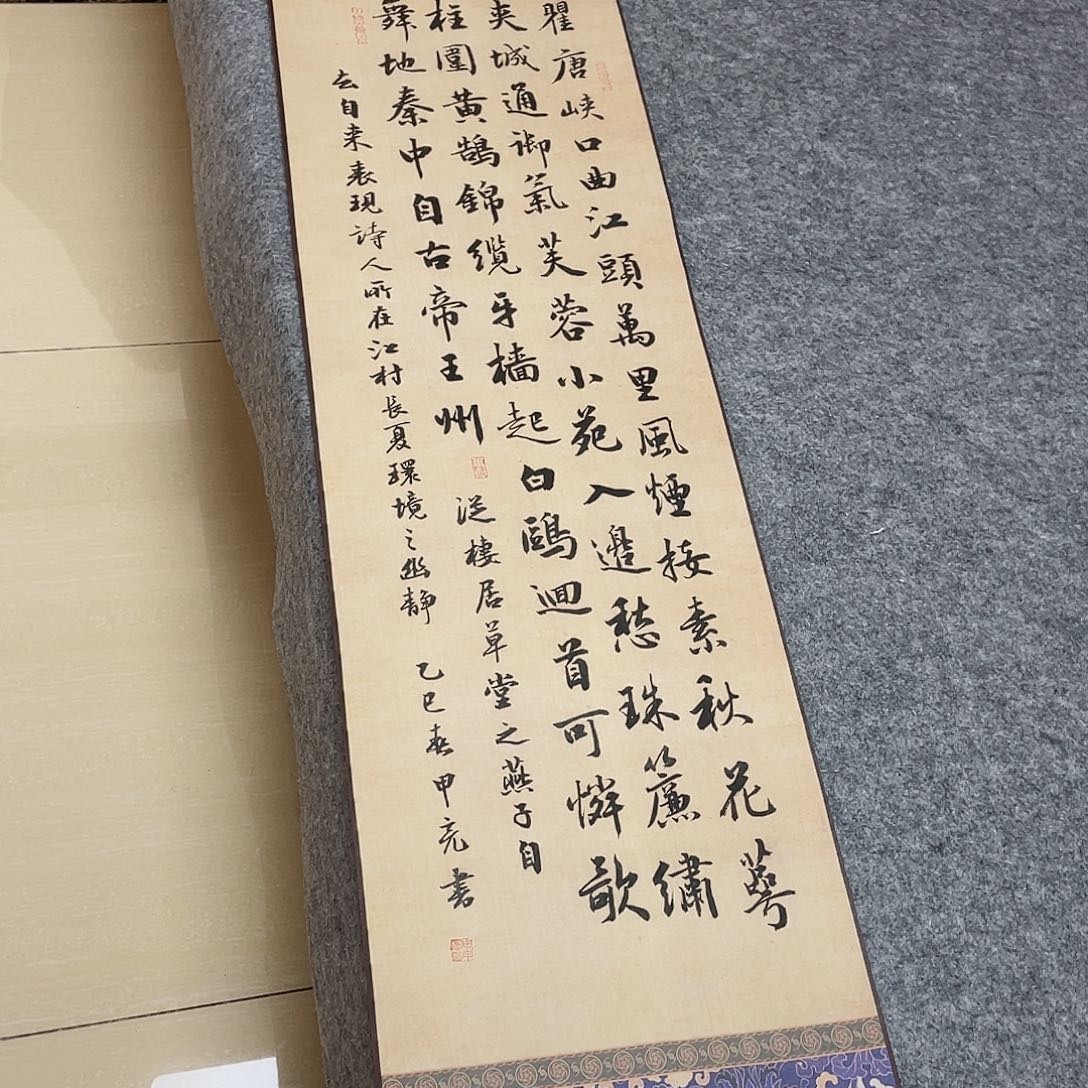 瞿唐峡口曲江頭萬里風煙接素秋花萼
夾城通御氣芙蓉小苑入邊愁珠簾繡
柱圍黄鵠錦纜牙檣起白鷗迴首可憐歌
舞地秦中自古帝王州 從棲居草堂之燕子自
去自来表現詩人所在江村長夏環境之幽静 乙巳春甲亮書